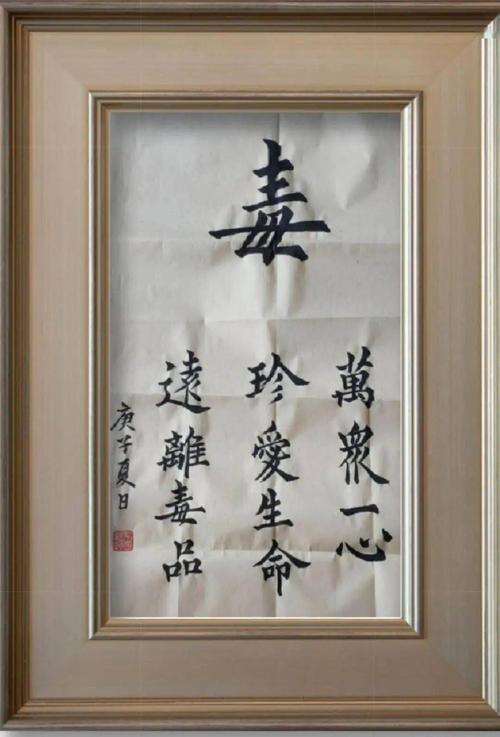 毒
萬衆一心
珍愛生命
遠離毒品
庚子夏日